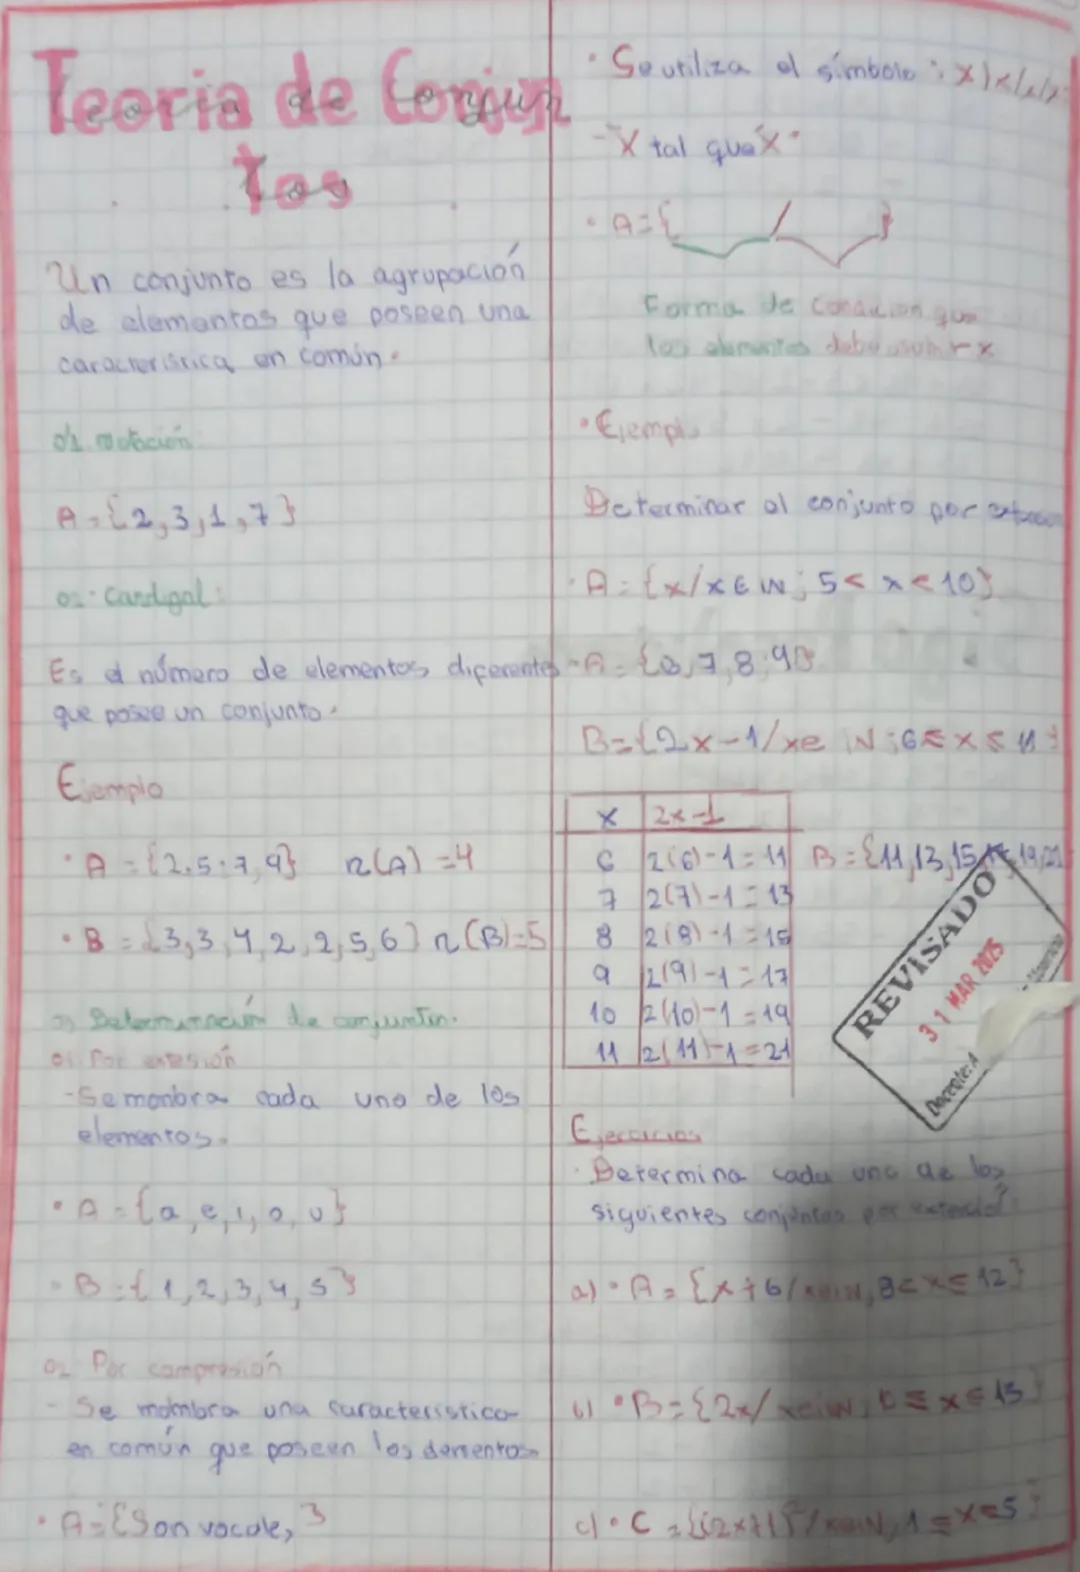 Teoria de Conjun
tos
Un conjunto es la agrupación
de elementos que poseen una
característica en común.
01. notación:
A = {2,3,1,7}
02. Cardigal:
Es el número de elementos diferentes
que posee un conjunto.
Ejemplo
• A = {2,5;7,9} n(A) = 4
• B = {3,3,4,2,2,5,6} n(B)=5
de conjuntos.
01 Por extesión
- Se monbra cada uno de los
elementos.
• A = {a,e,i,o,u}
• B = {1,2,3,4,5}
02 Por compresión
- Se mombra una caracteristica
en común que poseen los elementos
• A = {Son vocales}
• Se utiliza el símbolo
- X tal que X"
• A = { / }
Forma de condición que
los elementos debe x
• Ejemplo
Determinar al conjunto por
• A = {x/x ∈ IN; 5 < x < 10}
- A = {6,7,8;9}
B = {2x-1/xe IN;6≤x≤11}
x 2x-1
6 2(6)-1=11
7 2(7)-1=13
8 2(8)-1=15
9 2(9)-1=17
10 2(10)-1=19
11 2(11)-1=21
B = {11,13,15,17,19,21
REVISADO
31 MAR 2025
Docente: A
Ejercicios
• Determina cada uno de los
siguientes conjuntos por
a) • A = {x+6/ IN, 8<x≤12}
b) • B = {2x/ IN, 6≤x≤13}
c) • C = IN, 1≤x≤5}